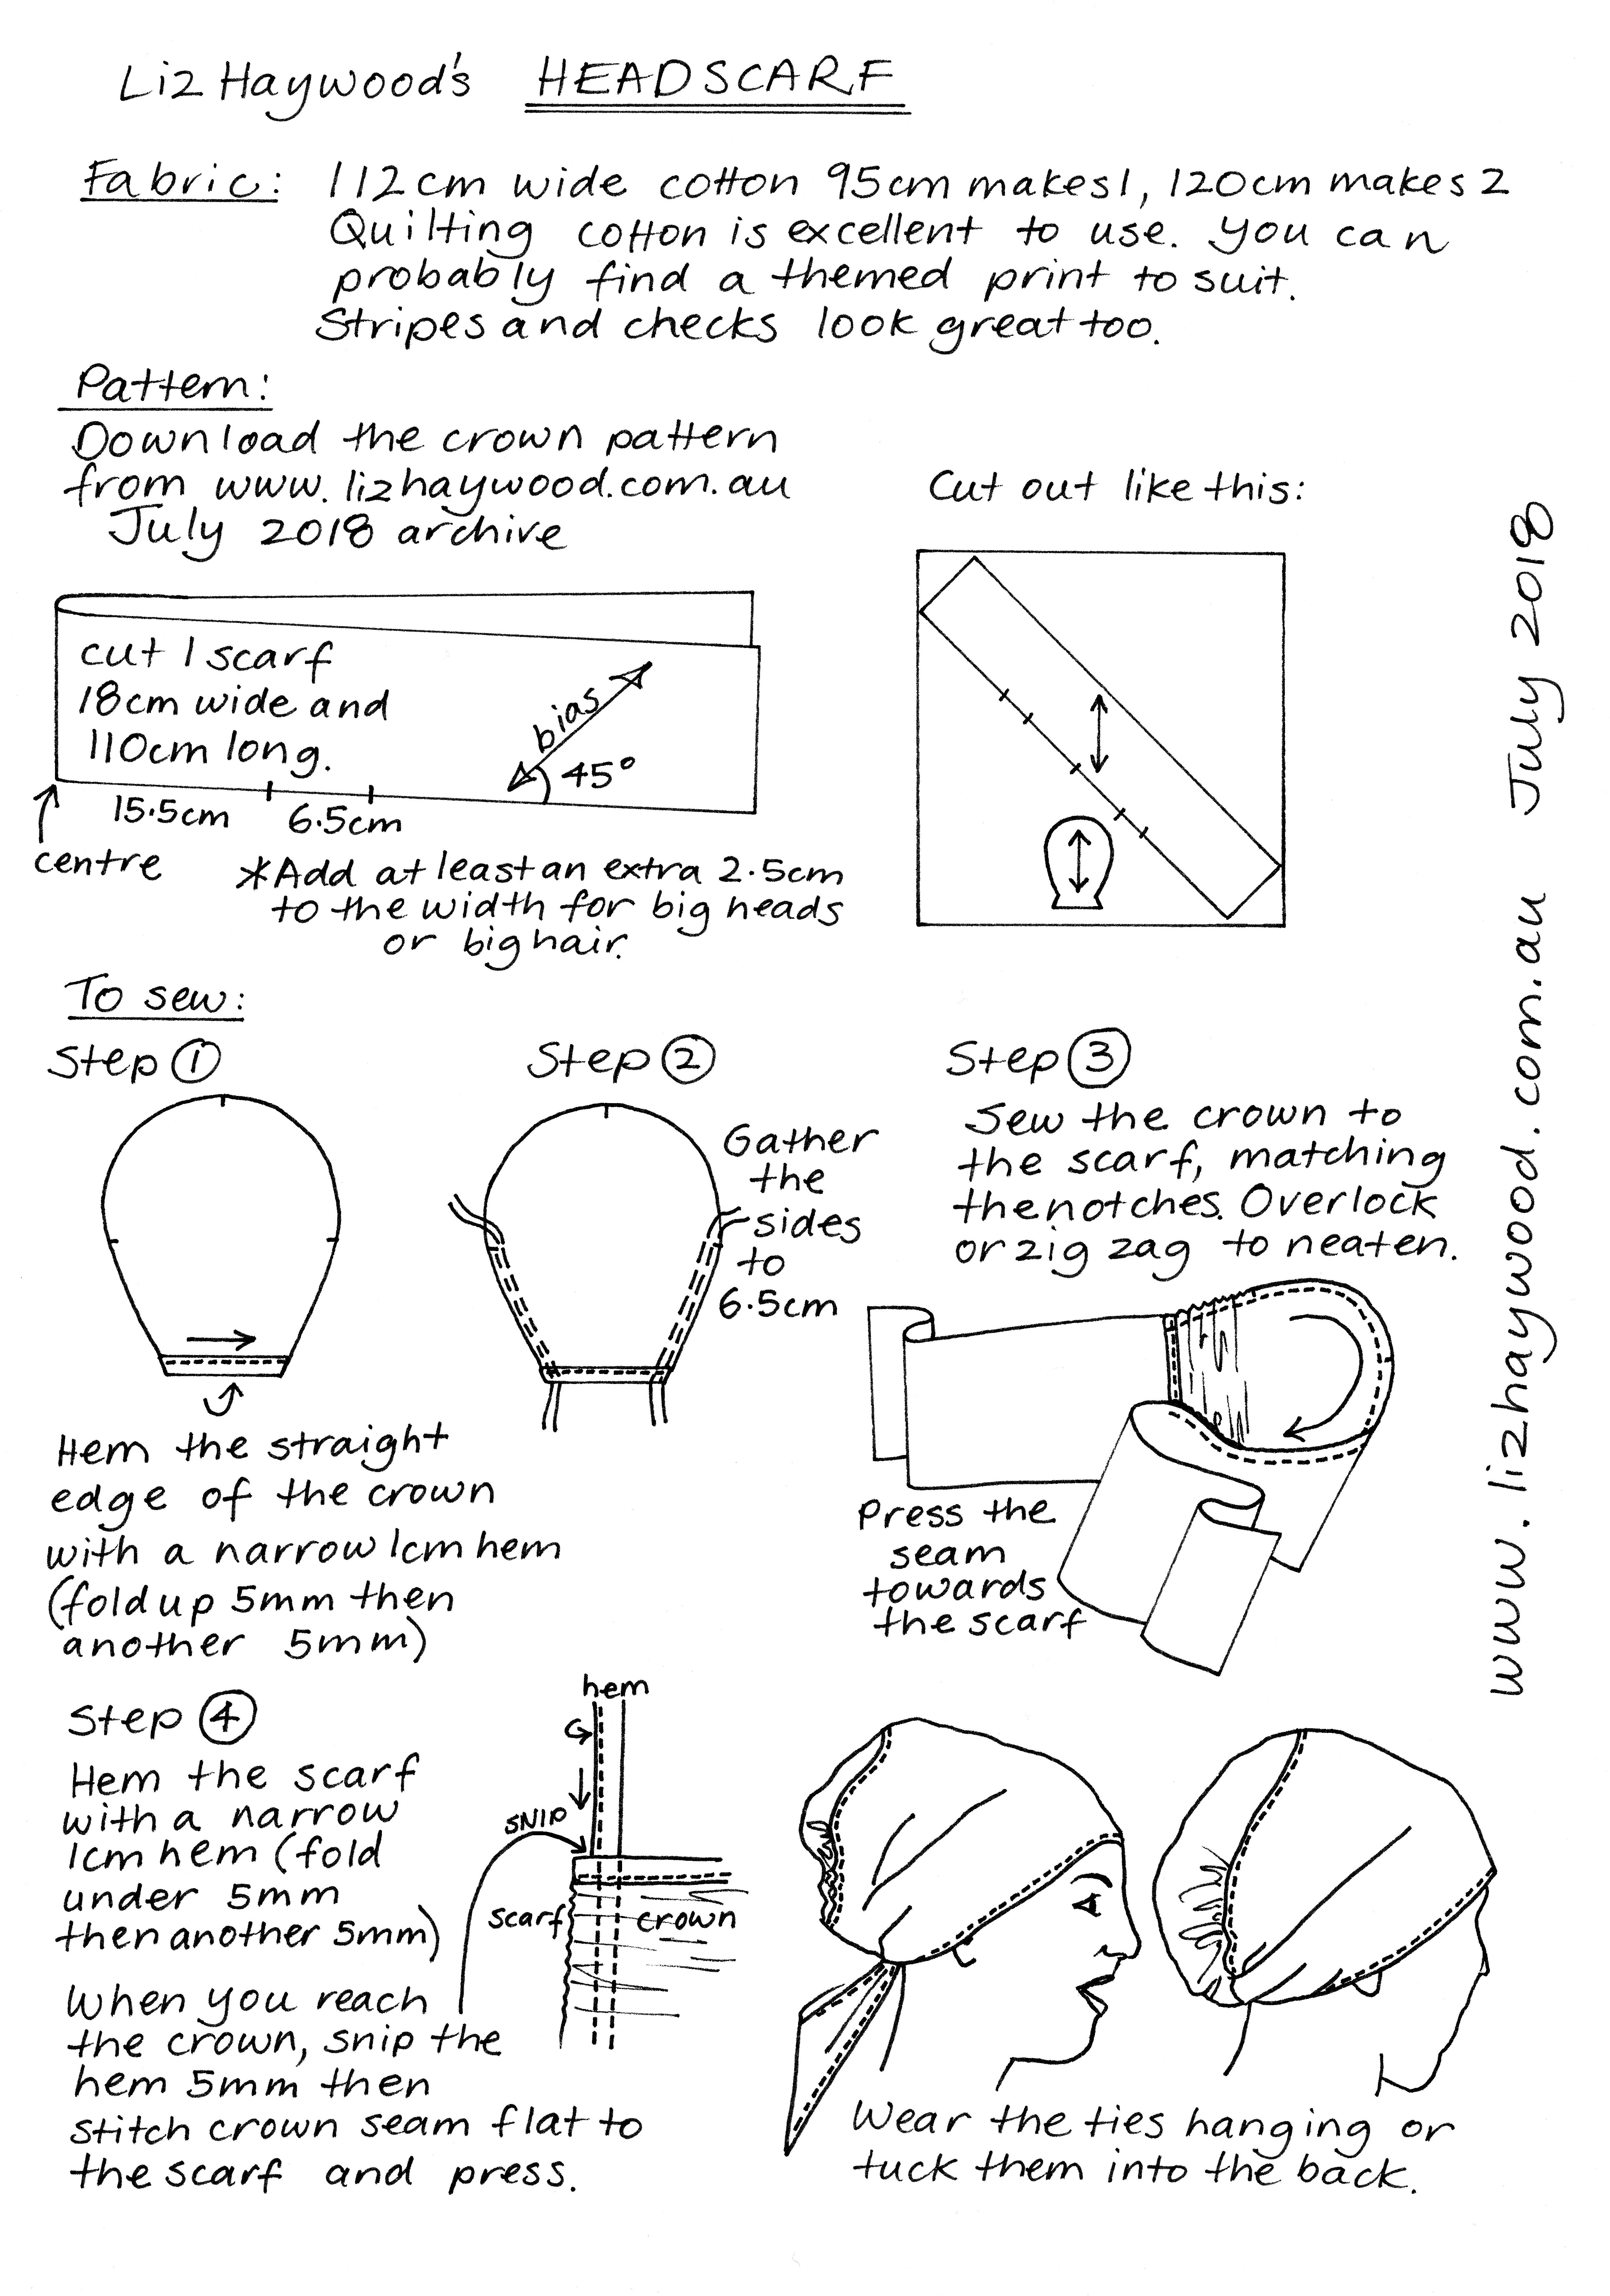 Liz Haywood's HEADSCARF
Fabric: 112cm wide cotton 95cm makes 1, 120cm makes 2
Quilting cotton is excellent to use. You can
probably find a themed print to suit.
Stripes and checks look great too.
Pattern:
Download the crown pattern
from www.lizhaywood.com.au
July 2018 archive
cut 1 scarf
18cm wide and
110cm long.
bias
45°
15.5cm 6.5cm
centre
*Add at least an extra 2.5cm
to the width for big heads
or big hair.
Cut out like this:
To sew:
Step 1
Hem the straight
edge of the crown
with a narrow 1cm hem
(fold up 5mm then
another 5mm)
Step 2
Gather
the
sides
to
6.5cm
Step 3
Sew the crown to
the scarf, matching
the notches. Overlock
or zig zag to neaten.
Press the
seam
towards
the scarf
Step 4
Hem the scarf
with a narrow
1cm hem (fold
under 5mm
then another 5mm)
When you reach
the crown, snip the
hem 5mm then
stitch crown seam flat to
the scarf and press.
hem
SNIP
scarf
crown
Wear the ties hanging or
tuck them into the back.
www.lizhaywood.com.au July 2018